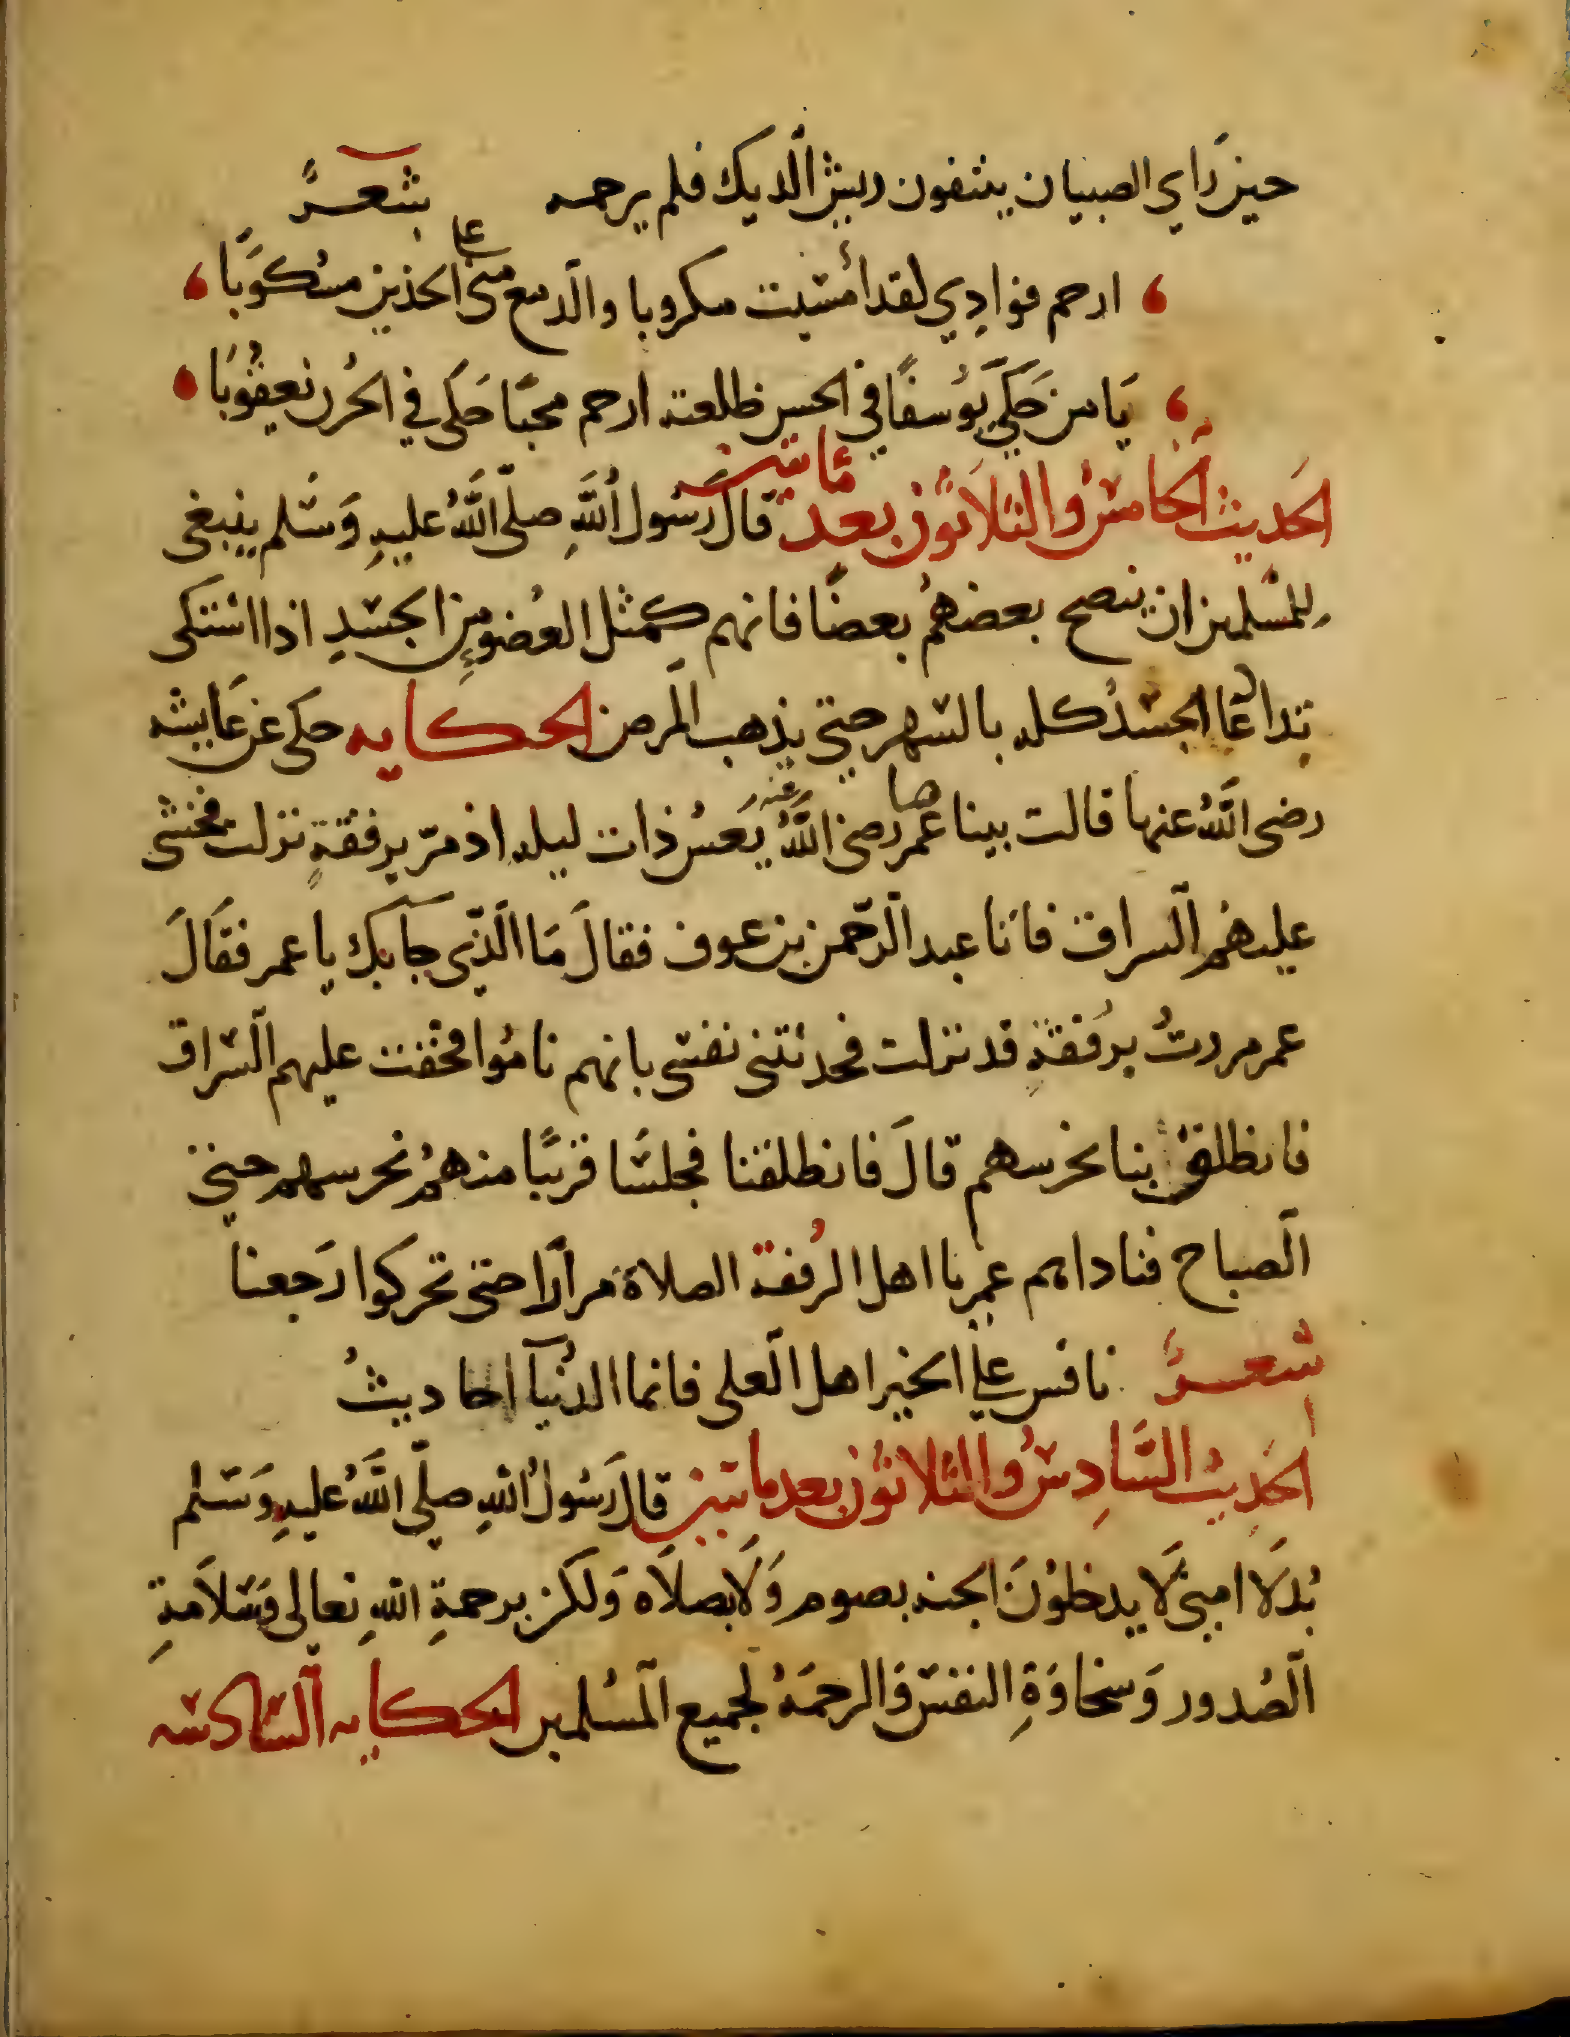 حين رَاي الصبيان ينتفون ريش الّديك فلم يرحمه شعرً
ارحم فوادِي لقد امسَيت مكروبا والّدمع منى على الخدين مسكوَبًا
يَا من حَكَي يَوُسفًا في الحسن طلعته ارحم محبّا حَكَى في الحُزن يعقوُبَا
الحَديث الخامسُ والثلاَثوُن بعد مائتين قالَ رَسُول اللهِ صلّى اللَّهُ عليهِ وَسَّلم ينبغى
للمُسْلمين ان ينصح بعضهُم بعضًا فانهم كمثل العُضوِ من الجسَدِ اذا اشتكى
تداعَا الجسَدُ كله بالسَهر حتي يذهب المَرض الحكايه حكى عَن عَايشه
رضى اللَّهُ عنها قالت بينما عمر رَضى اللَّهُ عنه يَعسُ ذات ليله اذ مرّ برفقةٍ نزلت فخشى
عليهُم الّسراق فاتَا عبد الّرحمن بن عوف فقالَ مَا الّذّي جَآ بك يا عمر فقَالَ
عمر مررتُ برُفقةٍ قد نزلت فحدثتنى نفسى بانهم نامُوا فخفت عليهم الّسَراق
فانطلق بنا نحرسهم قالَ فانطلقنا فجلسَنا قريبًا منهُم نحرسهم حتي
الَصباح فناداهم عمر يا اهل الرُفقة الصلاة مرارًا حتى تحركوا رَجعنا
شعرً نافس علي الخير اهل الّعلى فانما الدُنيَآ احاديثُ
الحَديث السَّادِسُ والثلاثوُن بعد ماتين قالَ رَسُولُ اللهِ صلّى اللَّهُ عليهِ وَسَلم
بُدلَا امتي لَا يدخلوُنَ الجنه بصوم وَلَا بصلاَه وَلكن برحمةِ اللهِ تعالى وَسَلاَمةِ
الّصُدور وَسخاوَةِ النفسِ وَالرحمَهُ لجميع الّمسُلمين الحكايه السَّادسَه